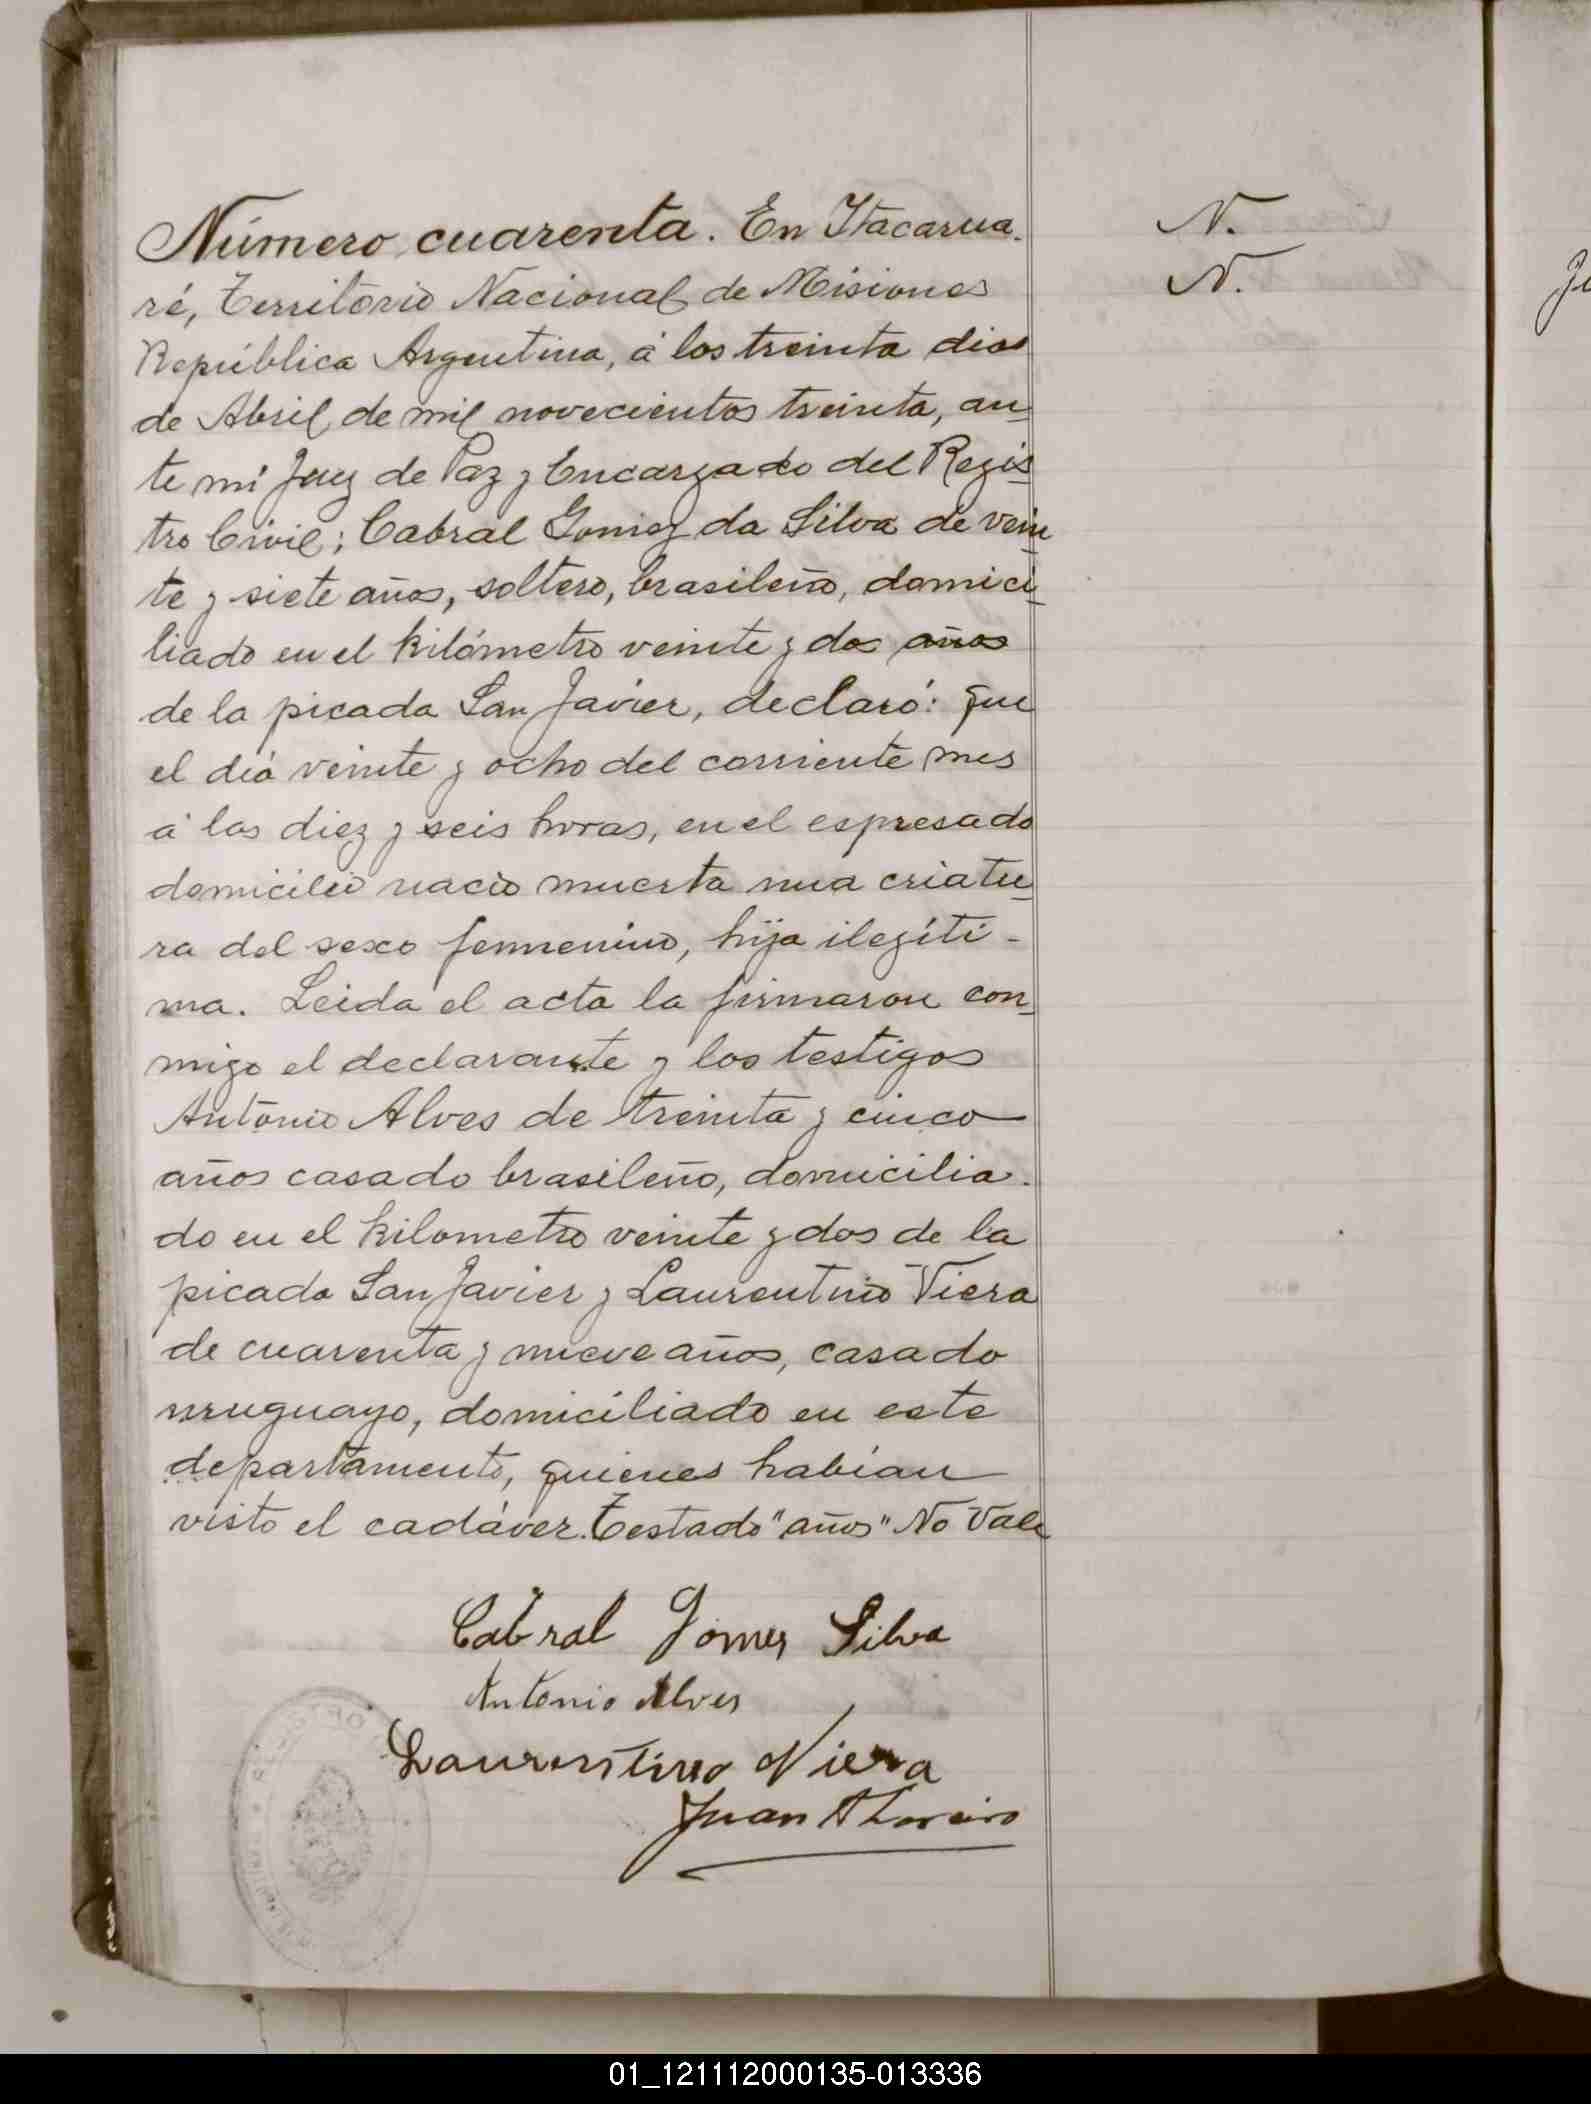 Número cuarenta. En Itacarua-
ré, Territorio Nacional de Misiones
República Argentina, á los treinta dias
de Abril de mil novecientos treinta, an-
te mi Juez de Paz y Encargado del Regis-
tro Civil; Cabral Gomez da Silva de vein-
te y siete años, soltero, brasileño, domici-
liado en el kilómetro veinte y dos años
de la picada San Javier, declaró: que
el dia veinte y ocho del corriente mes
á las diez y seis horas, en el espresado
domicilio nació muerta una criatu-
ra del sexo femenino, hija ilegíti-
ma. Leida el acta la firmaron con-
migo el declarante y los testigos
Antonio Alves de treinta y cinco
años casado brasileño, domicilia-
do en el kilometro veinte y dos de la
picada San Javier y Laurentino Viera
de cuarenta y nueve años, casado
uruguayo, domiciliado en este
departamento, quienes habían
visto el cadáver. Testado "años" No Vale
Cabral Gomes Silva
Antonio Alves
Laurentino Viera
Juan
N.
N.
REGISTRO
01_121112000135-013336